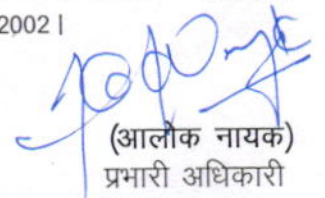 2002 |
(आलोक नायक)
प्रभारी अधिकारी